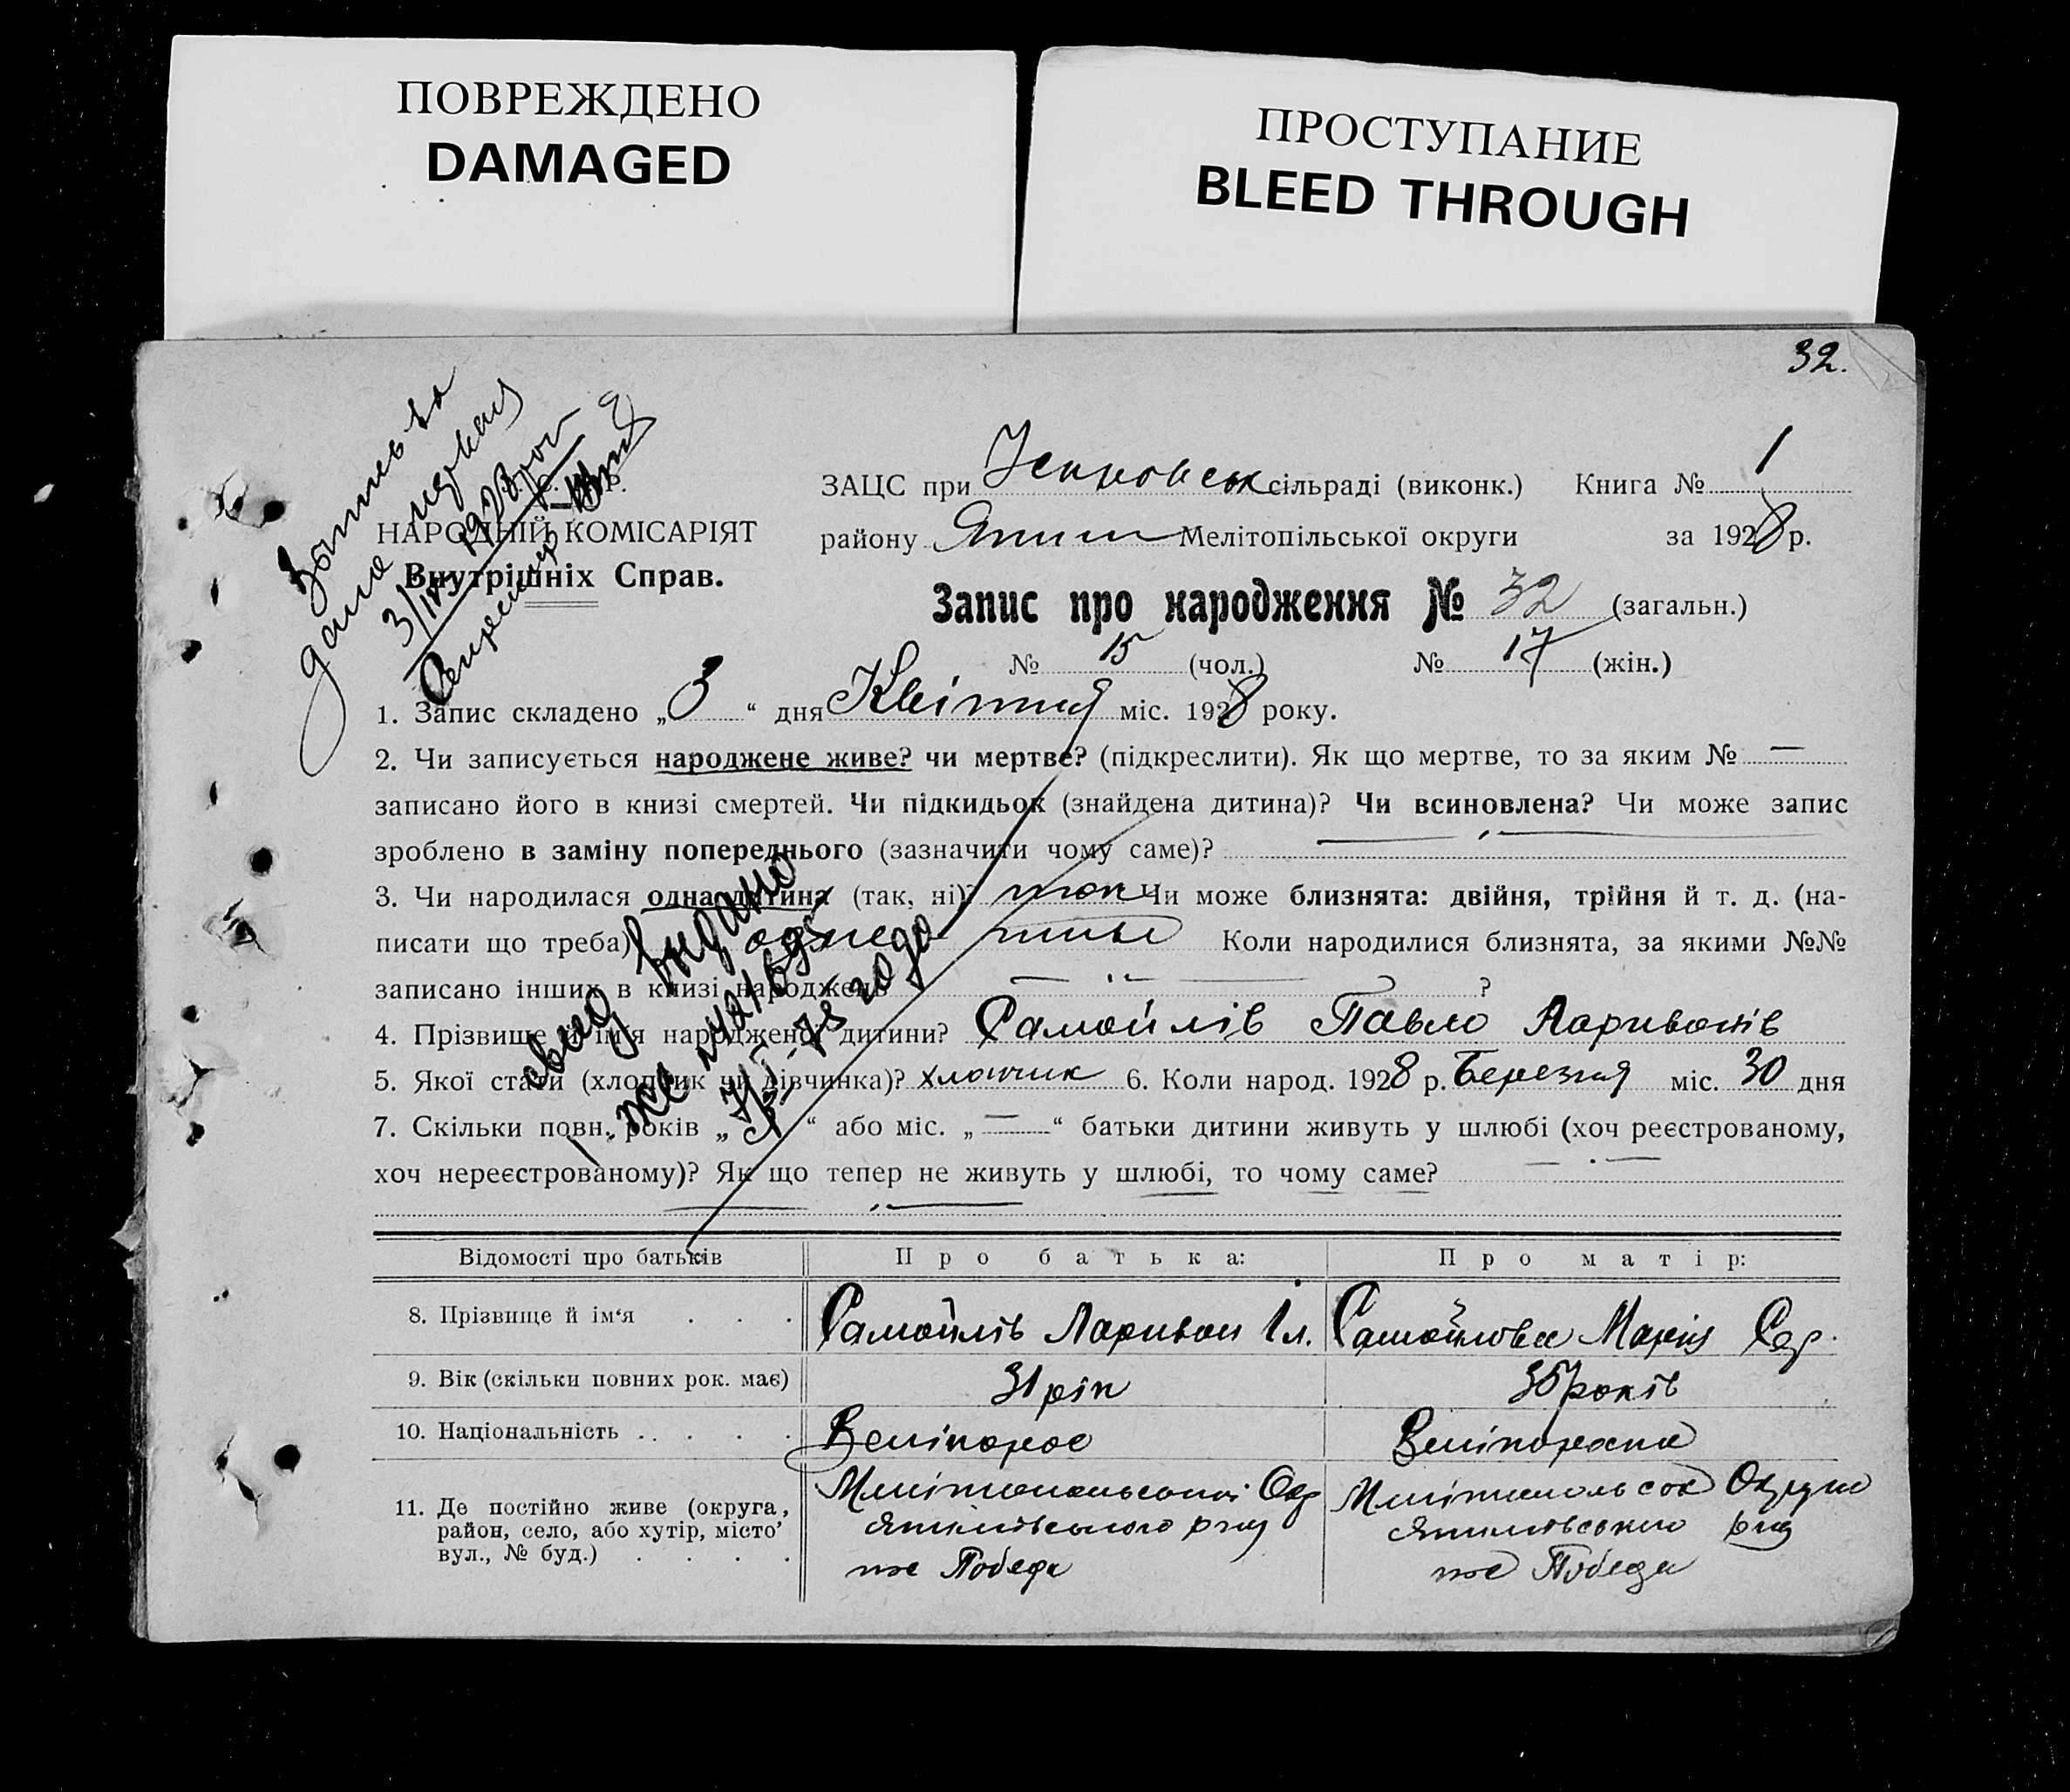 ПОВРЕЖДЕНО
DAMAGED
ПРОСТУПАНИЕ
BLEED THROUGH
32.
ЗАЦС при сільраді (виконк.) Книга № 1
НАРОДНІЙ КОМІСАРІЯТ
району Мелітопільської округи за 1928 р.
Внутрішніх Справ.
3/IV 1928
Запис про народження № 32 (загальн.)
№ 15 (чол.) № 17 (жін.)
1. Запис складено „3“ дня Квітня міс. 1928 року.
2. Чи записується народжене живе? чи мертве? (підкреслити). Як що мертве, то за яким № —
записано його в книзі смертей. Чи підкидьок (знайдена дитина)? Чи всиновлена? Чи може запис
зроблено в заміну попереднього (зазначити чому саме)?
3. Чи народилася одна дитина (так, ні)? так Чи може близнята: двійня, трійня й т. д. (на-
писати що треба) Коли народилися близнята, за якими №№
записано інших в книзі народжень ?
4. Прізвище й ім'я народженої дитини? Самойлів Павло Ларивонів
5. Якої стати (хлопчик чи дівчинка)? хлопчик 6. Коли народ. 1928 р. Березня міс. 30 дня
7. Скільки повн. років „ “ або міс. „—“ батьки дитини живуть у шлюбі (хоч реєстрованому,
хоч нереєстрованому)? Як що тепер не живуть у шлюбі, то чому саме?
свид выдано
75 года
Відомості про батьків Про батька: Про матір:
8. Прізвище й ім‘я Самойлів Ларивон Самойлова Марія
9. Вік (скільки повних рок. має) 31 рік 35 років
10. Національність Велікорос Велікороска
11. Де постійно живе (округа, район, село, або хутір, місто’ вул., № буд.)
Якимівського р-ну Якимівського р-ну
Победа Победа